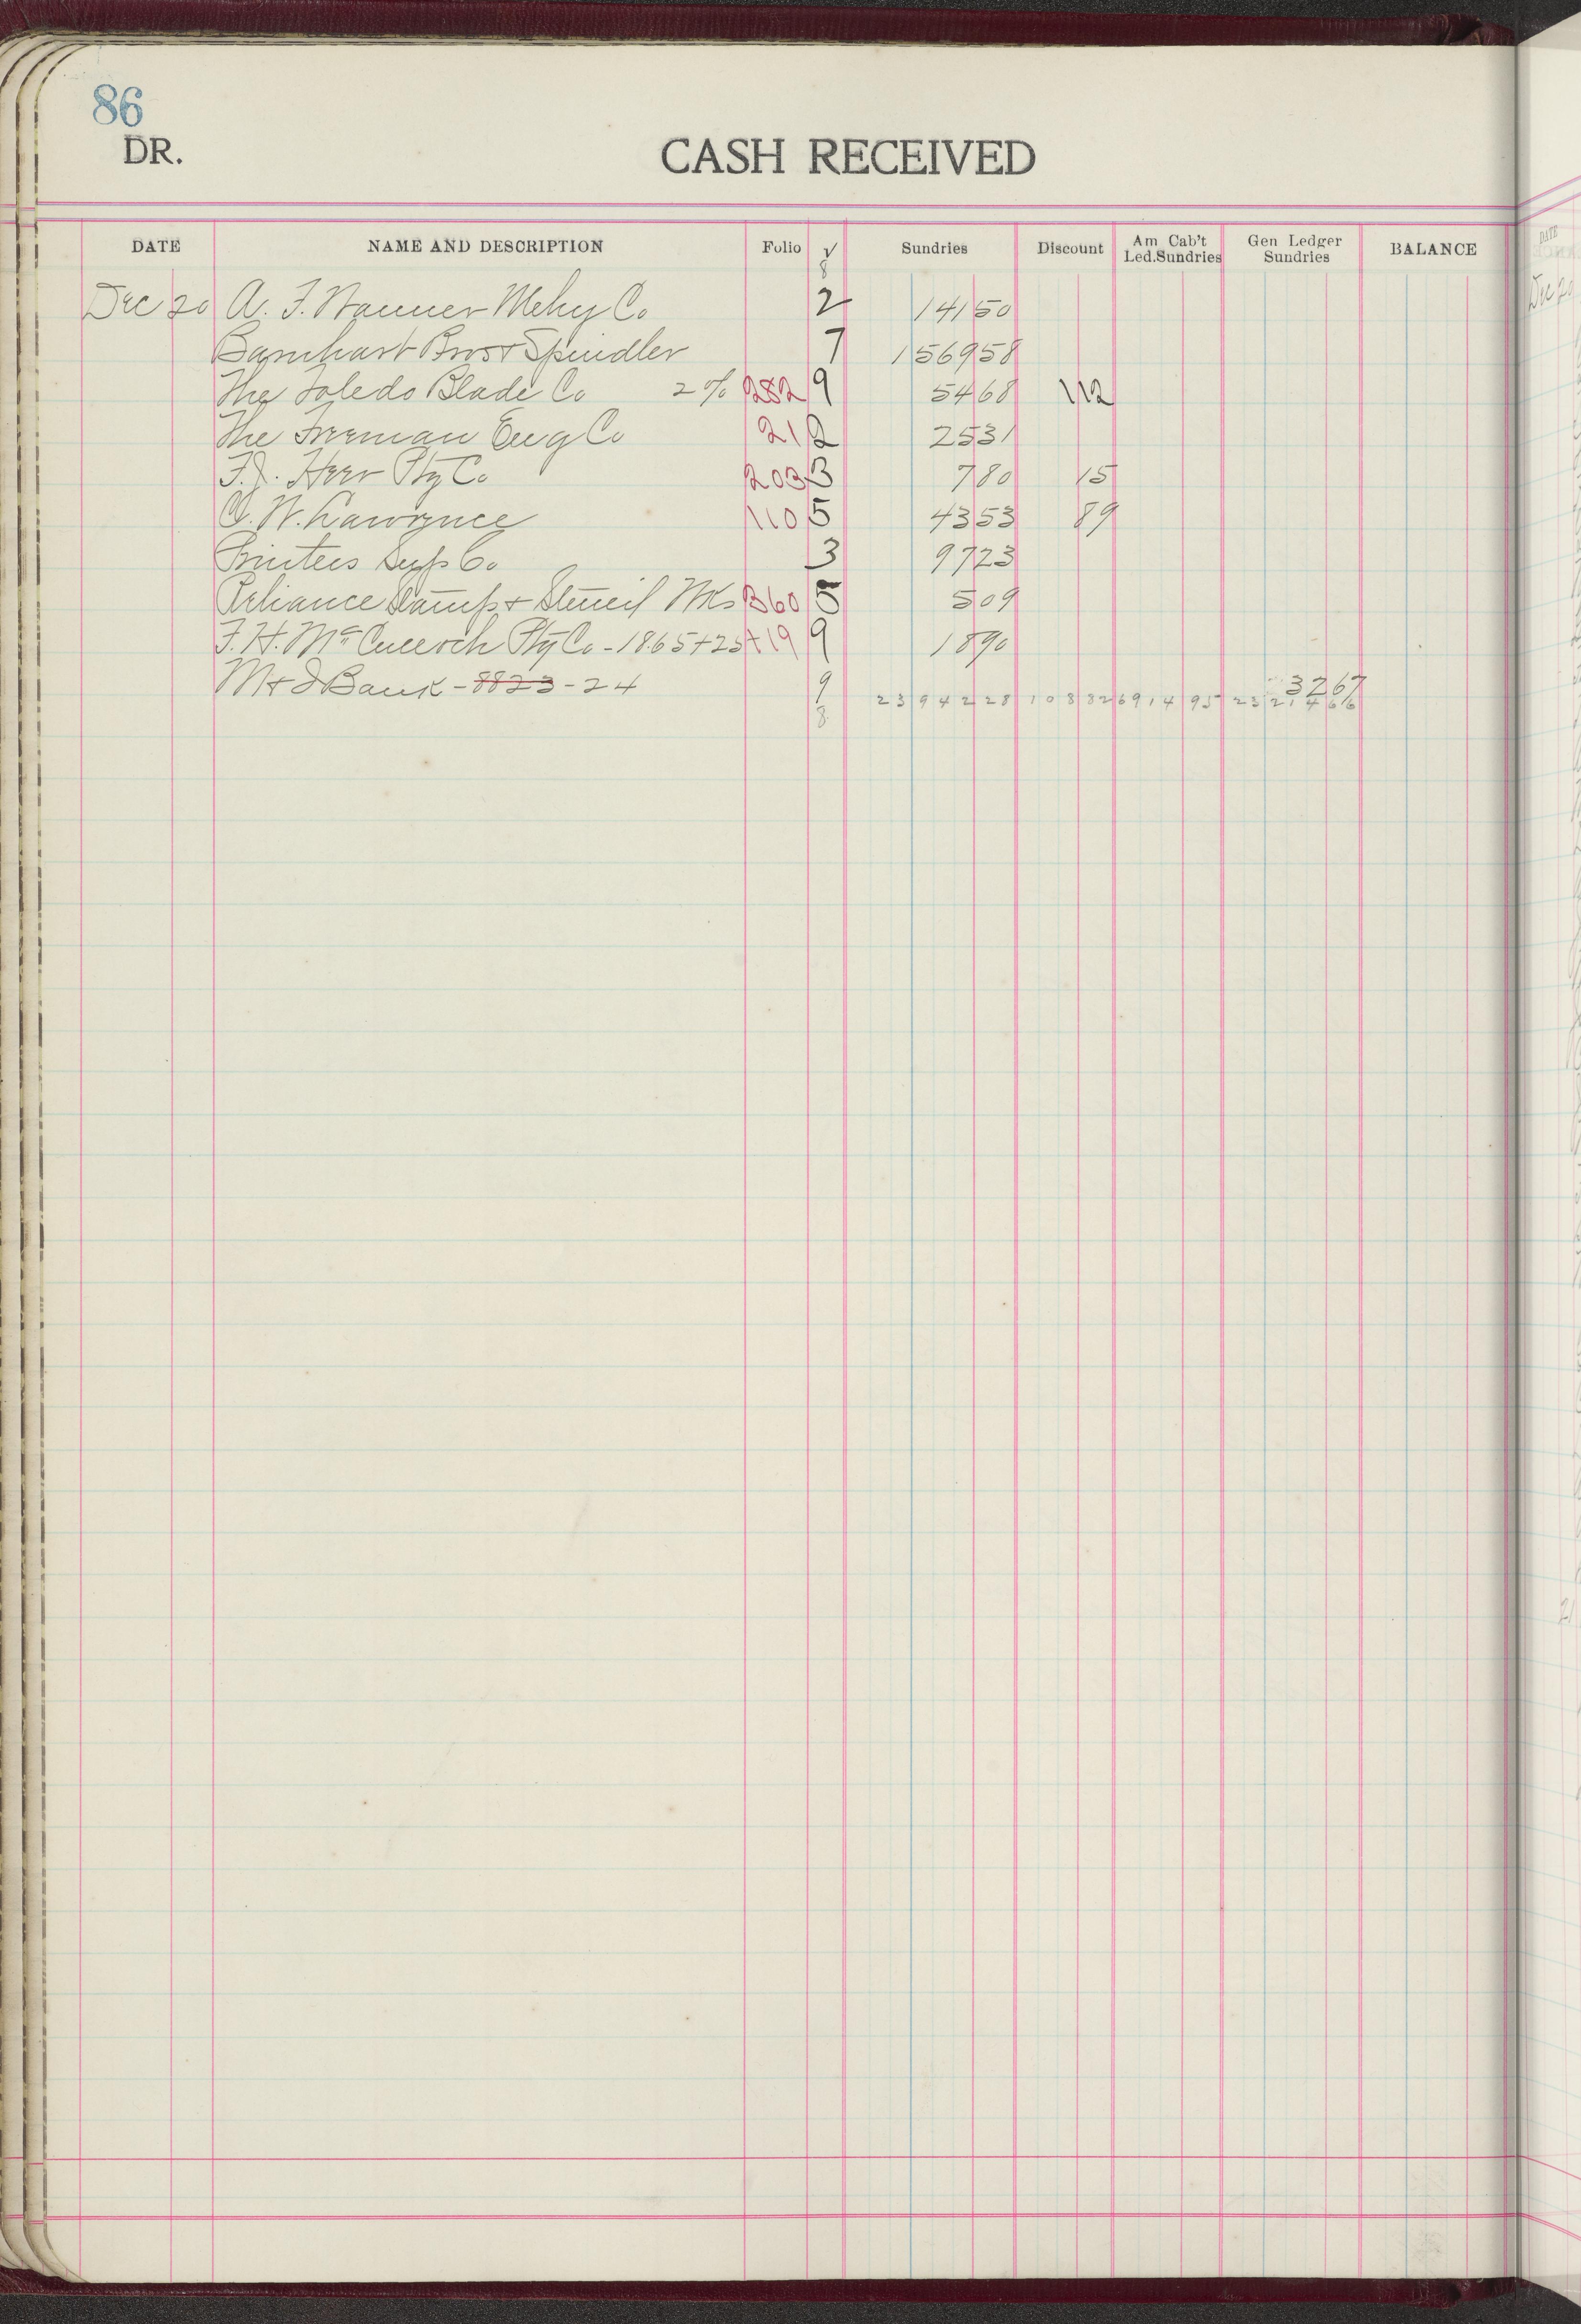 86
DR.
CASH RECEIVED
DATE NAME AND DESCRIPTION Folio √ Sundries Discount Am Cab't Led.Sundries Gen Ledger Sundries BALANCE
8
Dec 20 A. F. Wanner Mchy Co 2 141 50
Barnhart Bros & Spindler 7 1569 58
The Toledo Blade Co 2% 282 9 54 68 1 12
The Freeman Eng Co 21 2 25 31
F. J. Heer Ptg Co 203 3 7 80 15
C. W. Lawrence 110 5 43 53 89
Printers Sup Co 3 97 23
Reliance Stamp & Stencil Wks 360 5 5 09
F. H. McCulloch Ptg Co - 18.65 + 25 + 19 9 18 90
M & I Bank - 8823 - 24 9 32 67
8 23942 28 108 82 6914 95 23214 66
DATE
Dec 20
21